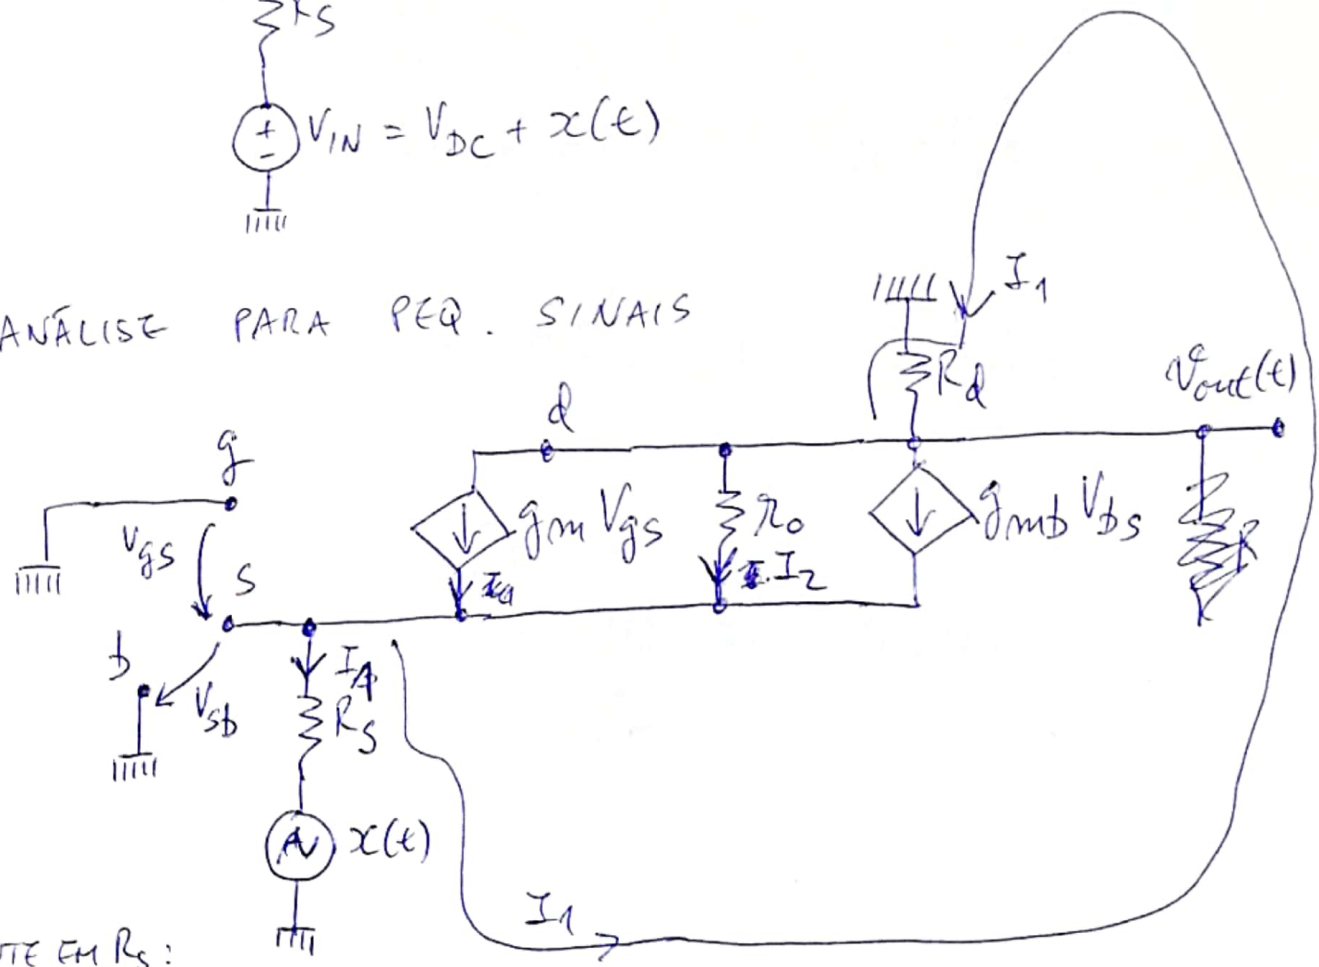 RS
+
-
VIN = VDC + x(t)
ANÁLISE PARA PEQ. SINAIS
I1
Rd
vout(t)
d
g
gm Vgs
ro
gmb Vbs
R
Vgs
s
I2
b
Vsb
RS
x(t)
I1